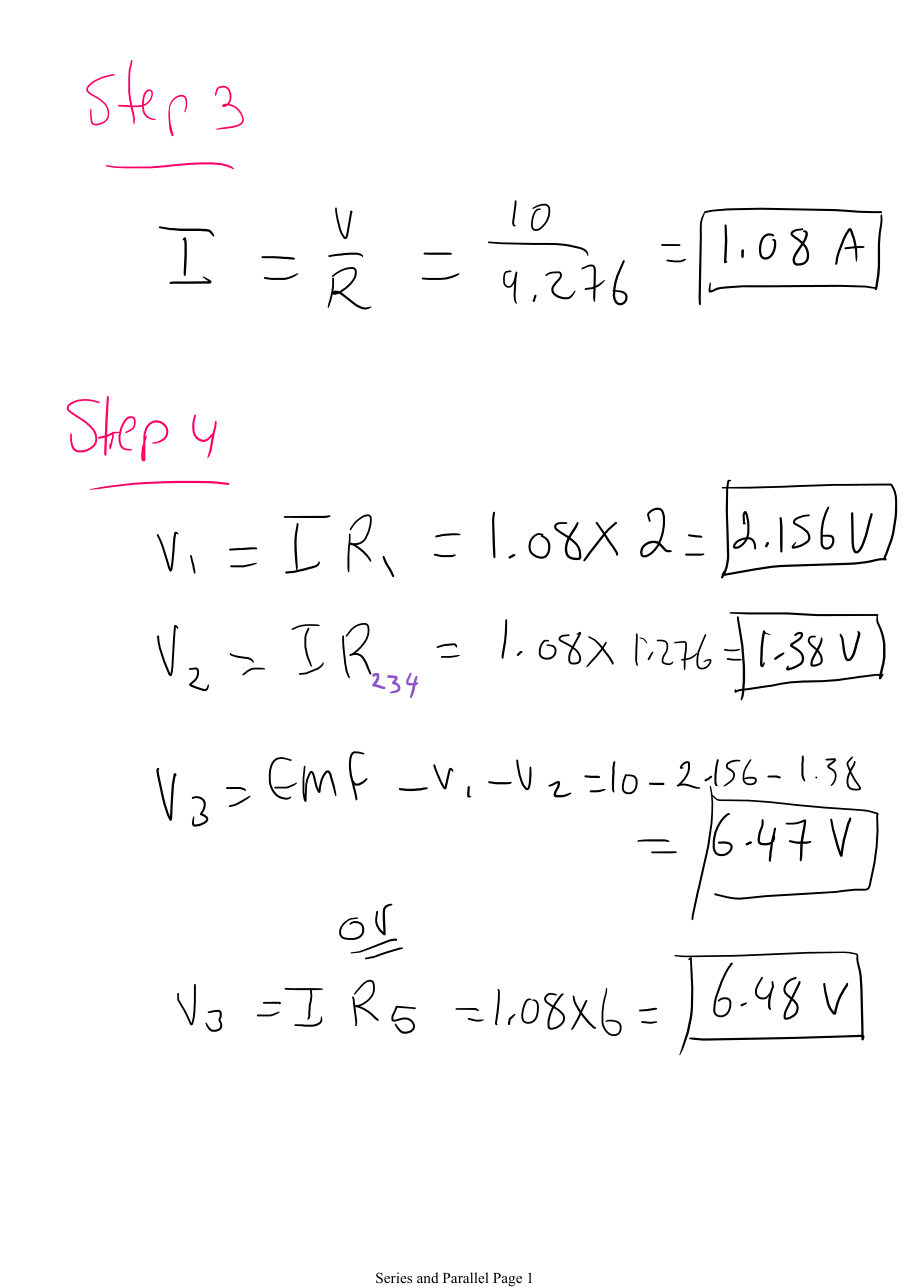 Step 3
I = V/R = 10/9.276 = 1.08 A
Step 4
V₁ = I R₁ = 1.08 × 2 = 2.156 V
V₂ = I R₂₃₄ = 1.08 × 1.276 = 1.38 V
V₃ = EMF - V₁ - V₂ = 10 - 2.156 - 1.38
= 6.47 V
or
V₃ = I R₅ = 1.08 × 6 = 6.48 V
Series and Parallel Page 1